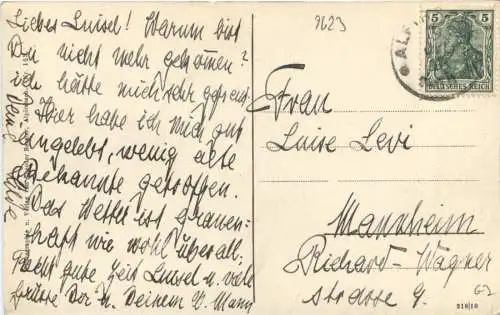 Liebes Luisel! Warum bist
Du nicht mehr gekommen?
ich hätte mich sehr gefreut
Hier habe ich mich gut
eingelebt, wenig alte
Bekannte getroffen.
Das Wetter ist grauen-
haft wie wohl überall.
Recht gute Zeit Luisel u. viele
Grüsse Dir u. Deinem l. Mann
Deine
9623
5 5
DEUTSCHES REICH
Frau
Luise Levi
Mannheim
Richard-Wagner
strasse 9.